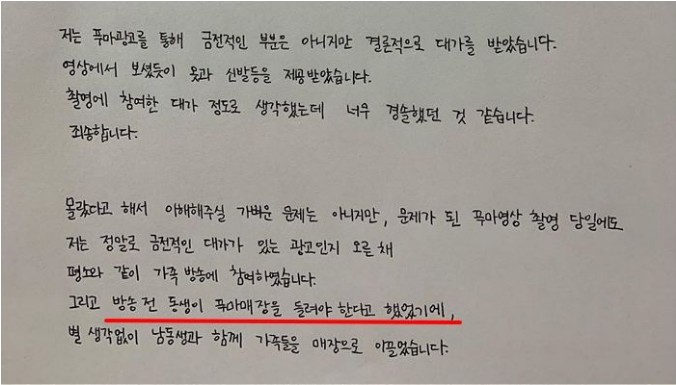 저는 푸마광고를 통해 금전적인 부분은 아니지만 결론적으로 대가를 받았습니다.
영상에서 보셨듯이 옷과 신발등을 제공받았습니다.
촬영에 참여한 대가 정도로 생각했는데 너무 경솔했던 것 같습니다.
죄송합니다.
몰랐다고 해서 이해해주실 가벼운 문제는 아니지만, 문제가 된 푸마영상 촬영 당일에도
저는 정말로 금전적인 대가가 있는 광고인지 모른 채
평소와 같이 가족 방송에 참여하였습니다.
그리고 방송 전 동생이 푸마매장을 들려야 한다고 했었기에,
별 생각없이 남동생과 함께 가족들을 매장으로 이끌었습니다.